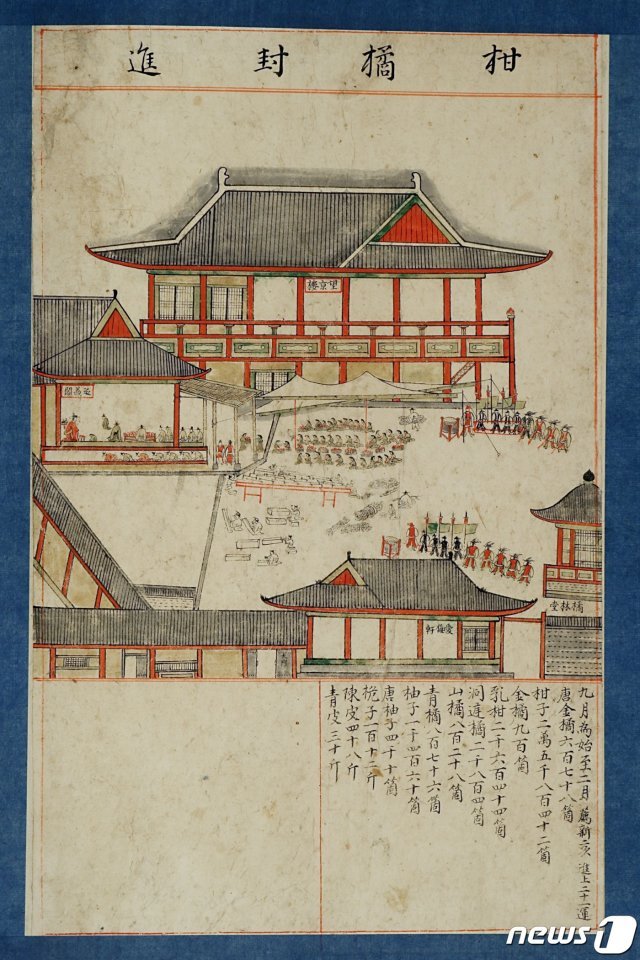 柑橘封進
望京樓
愛梅軒
橘林堂
九月為始至二月 薦新二次 進上二十一運
唐金橘六百七十八箇
柑子二萬五千八百四十二箇
金橘九百箇
乳柑二千六百四十四箇
洞庭橘二千八百四箇
山橘八百二十八箇
青橘八百七十六箇
柚子一千四百六十箇
唐柚子四千十箇
梔子一百十二斤
陳皮四十八斤
青皮三十斤
news1